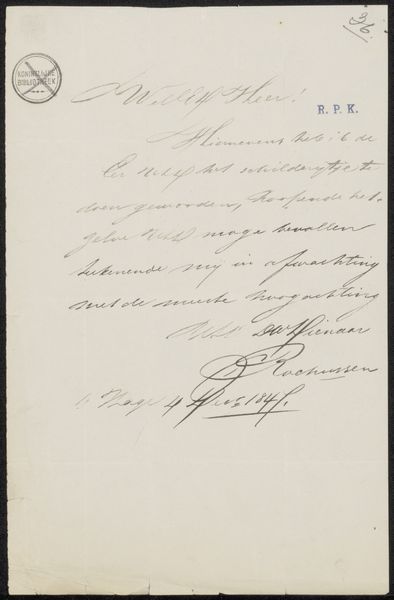 36.
KONINKLIJKE
BIBLIOTHEEK
WelEd Heer!
R. P. K.
Hiernevens heb ik de
Eer UEd het schilderijtje te
doen geworden, hoopende het
zelve UEd moge bevallen
teekenende mij in afwachting
met de meeste hoogachting
UEd DWDienaar
Rochussen
Hage 4 184